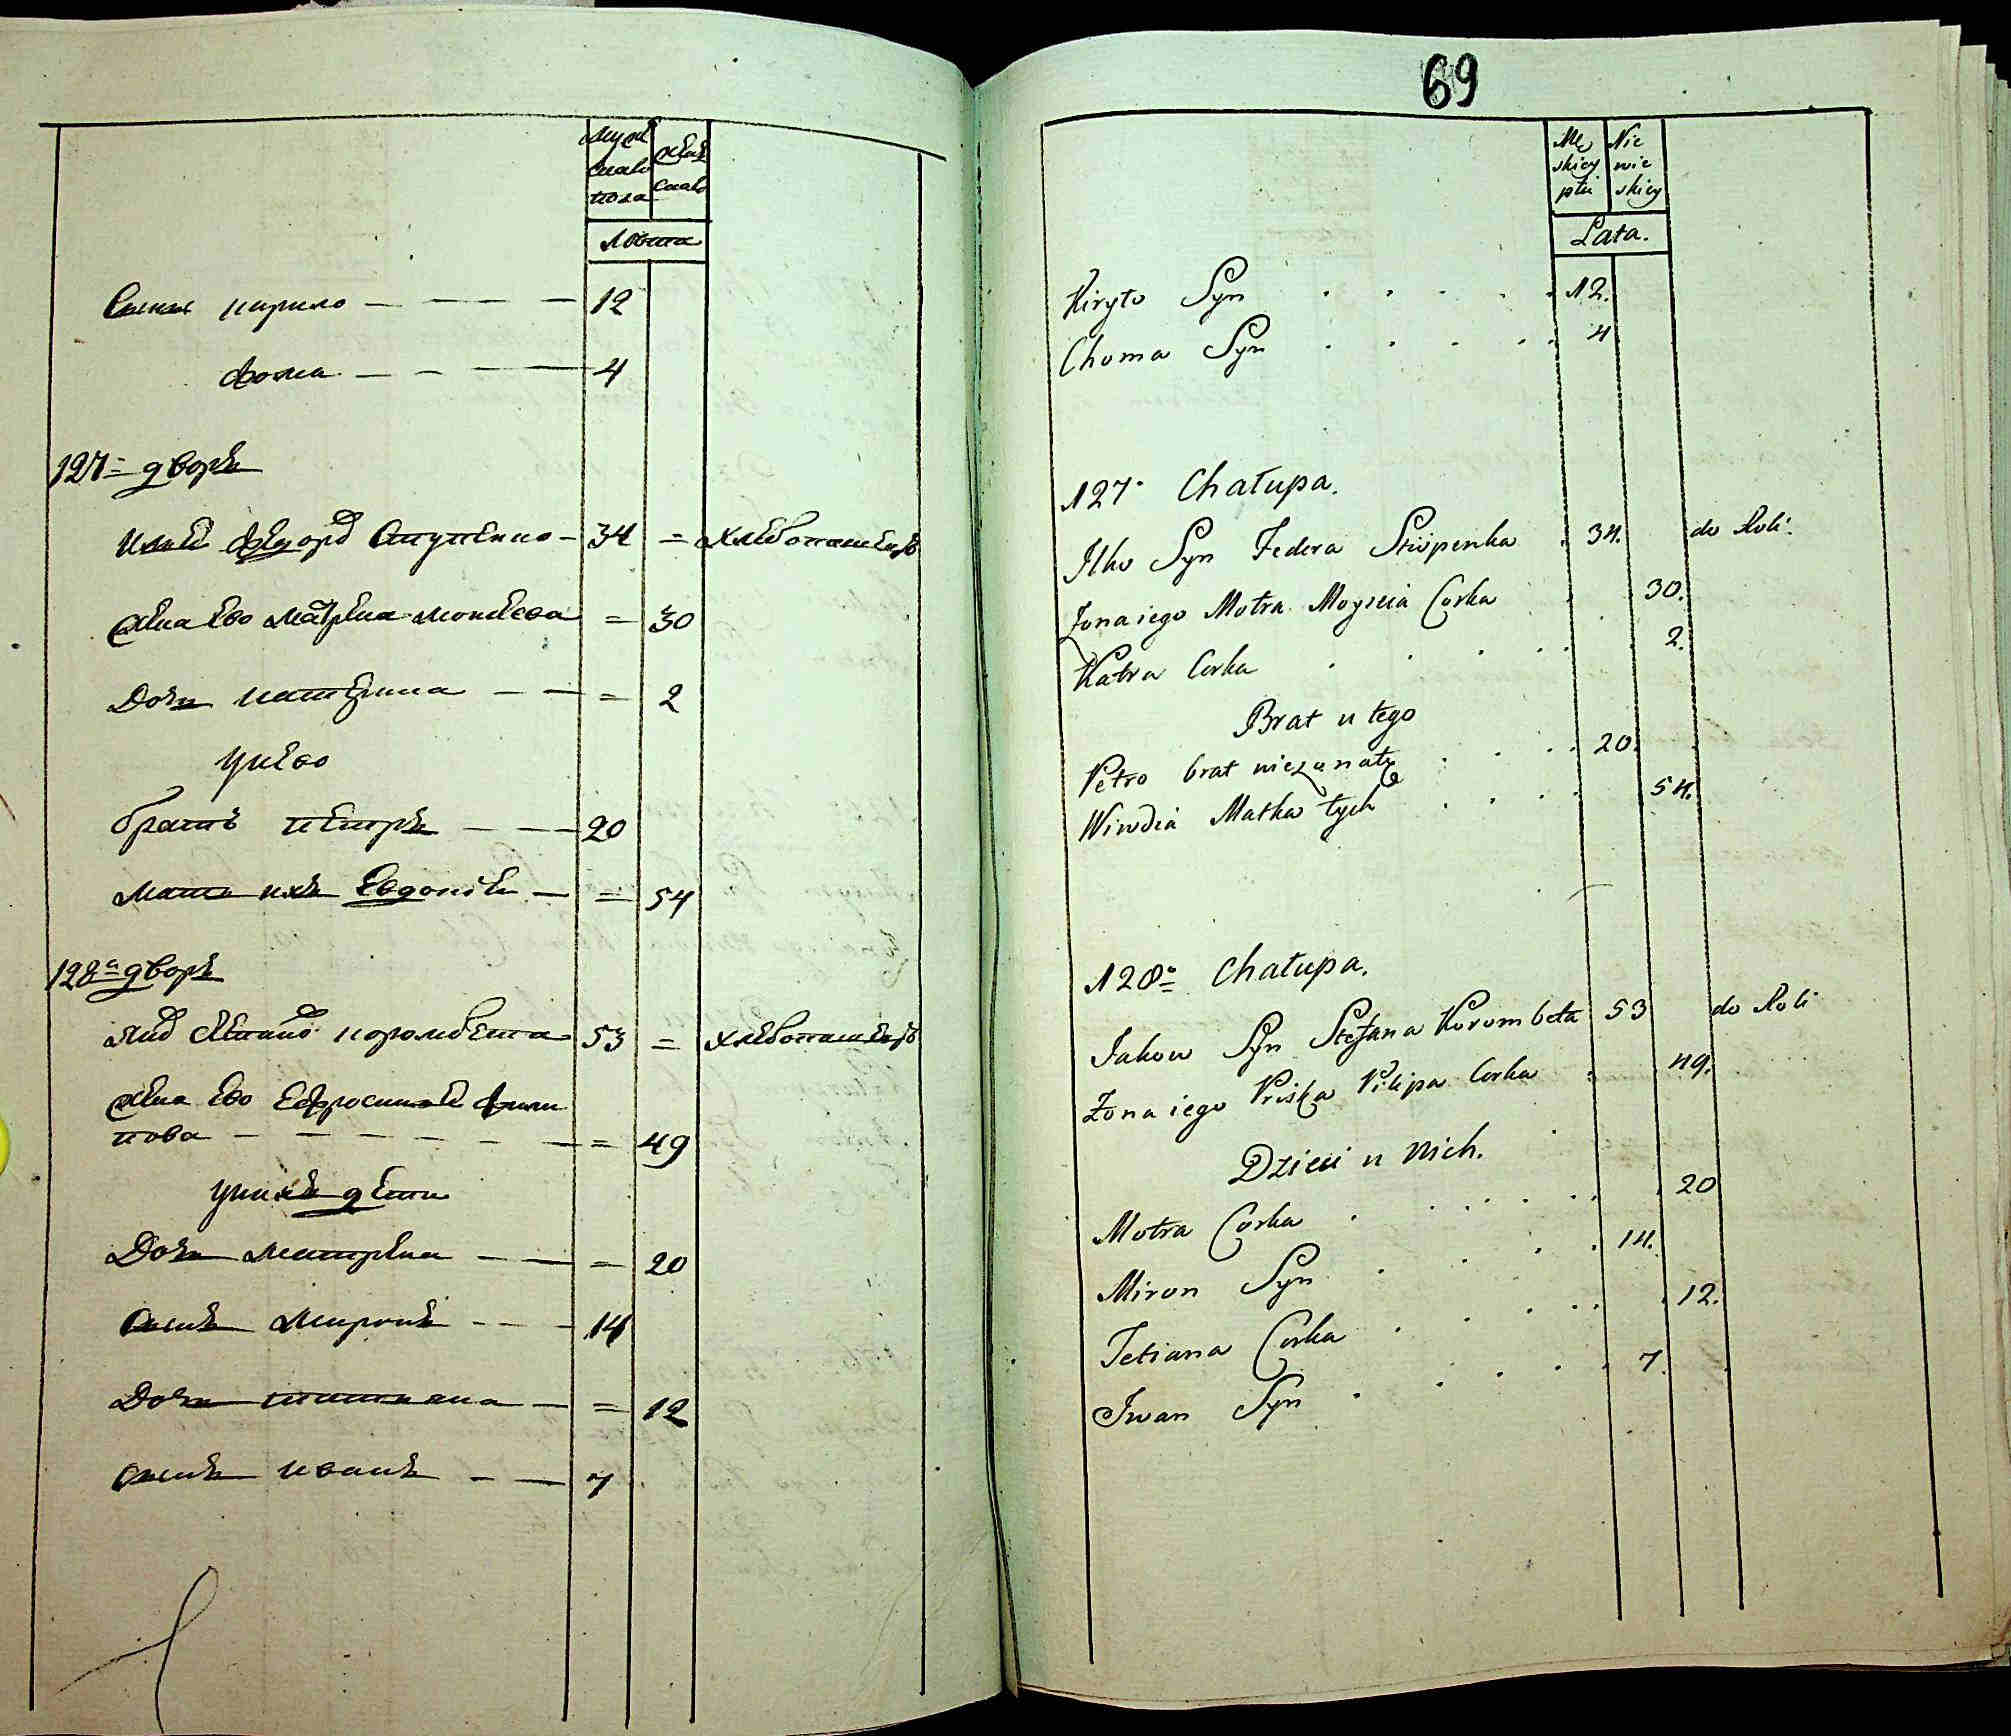 муж
скаго
пола
жен
скаго
Лѣта
Сынъ кирило 12
фома 4
127 = дворъ
34 = хлѣбопашецъ
жена ево матрена моисѣева = 30
Дочь катерина = 2
у него
братъ петръ 20
мать ихъ Евдокія = 54
128й дворъ
коромбета 53 = хлѣбопашецъ
жена ево Ефросинія Фили
пова = 49
у нихъ дети
Дочь матрена = 20
Сынъ миронъ 14
Дочь татияна = 12
Сынъ иванъ 7
69
Mę
skiey
płci
Nie
wie
skiey
Lata.
Kiryło Syn 12.
Choma Syn 4
127. Chałupa.
Ilko Syn Fedora 34. do Roli.
Zona iego Motra Moyseia Corka 30.
Katra Corka 2.
Brat u tego
Petro brat niezonaty 20.
Matka tych 54.
128. Chałupa.
Jakow Syn Stefana Korombeta 53 do Roli
Zona iego Priska Pilipa Corka 49.
Dzieci u nich.
Motra Corka 20
Miron Syn 14.
Tetiana Corka 12.
Iwan Syn 7.